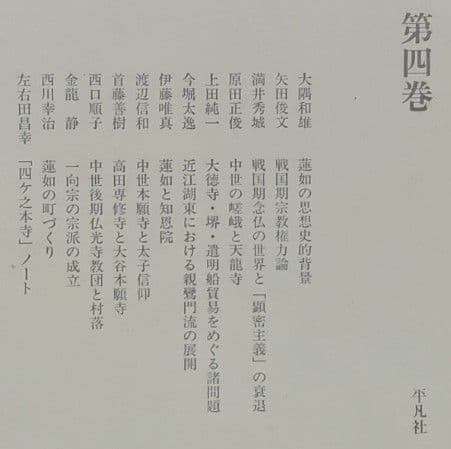 第四巻
大隅和雄 蓮如の思想史的背景
矢田俊文 戦国期宗教権力論
満井秀城 戦国期念仏の世界と「顕密主義」の衰退
原田正俊 中世の嵯峨と天龍寺
上田純一 大徳寺・堺・遣明船貿易をめぐる諸問題
今堀太逸 近江湖東における親鸞門流の展開
伊藤唯真 蓮如と知恩院
渡辺信和 中世本願寺と太子信仰
首藤善樹 高田専修寺と大谷本願寺
西口順子 中世後期仏光寺教団と村落
金龍静 一向宗の宗派の成立
西川幸治 蓮如の町づくり
左右田昌幸 「四ケ之本寺」ノート
平凡社